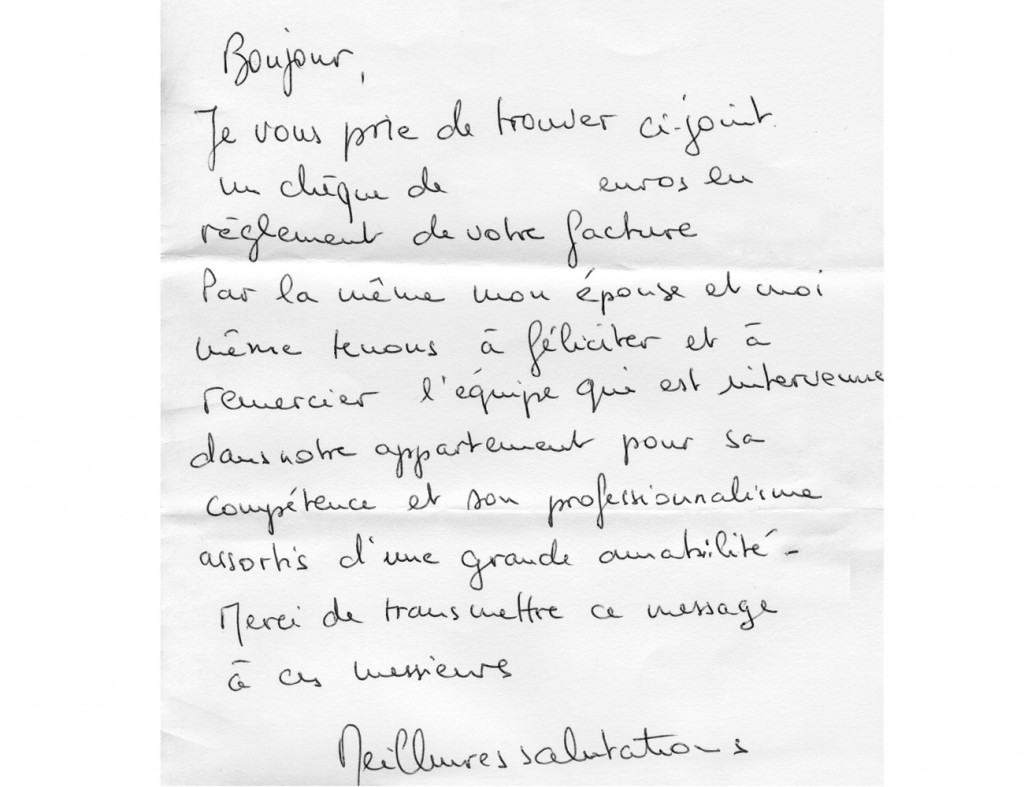 Bonjour,
Je vous prie de trouver ci-joint
un chèque de euros en
règlement de votre facture
Par la même mon épouse et moi
même tenons à féliciter et à
remercier l'équipe qui est intervenue
dans notre appartement pour sa
compétence et son professionnalisme
assortis d'une grande amabilité -
Merci de transmettre ce message
à ces messieurs
Meilleures salutations